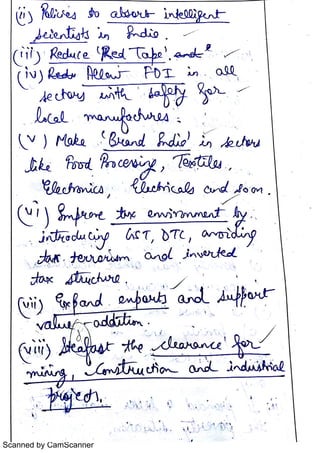 (ii) Policies to absorb intelligent
scientists in India.
(iii) Reduce 'Red Tape'. and
(iv) Redu Allow FDI in all
sectors with safety for
local manufactures.
(v) Make 'Brand India' in sectors
like Food Processing, Textiles,
Electronics, Electricals and so on.
(vi) Improve tax environment by
introducing GST, DTC, avoiding
tax terrorism and inverted
tax structure.
(vii) Expand exports and support
value-addition.
(viii) Steafast the 'clearance' for
mining, construction and industrial
projects.
Scanned by CamScanner